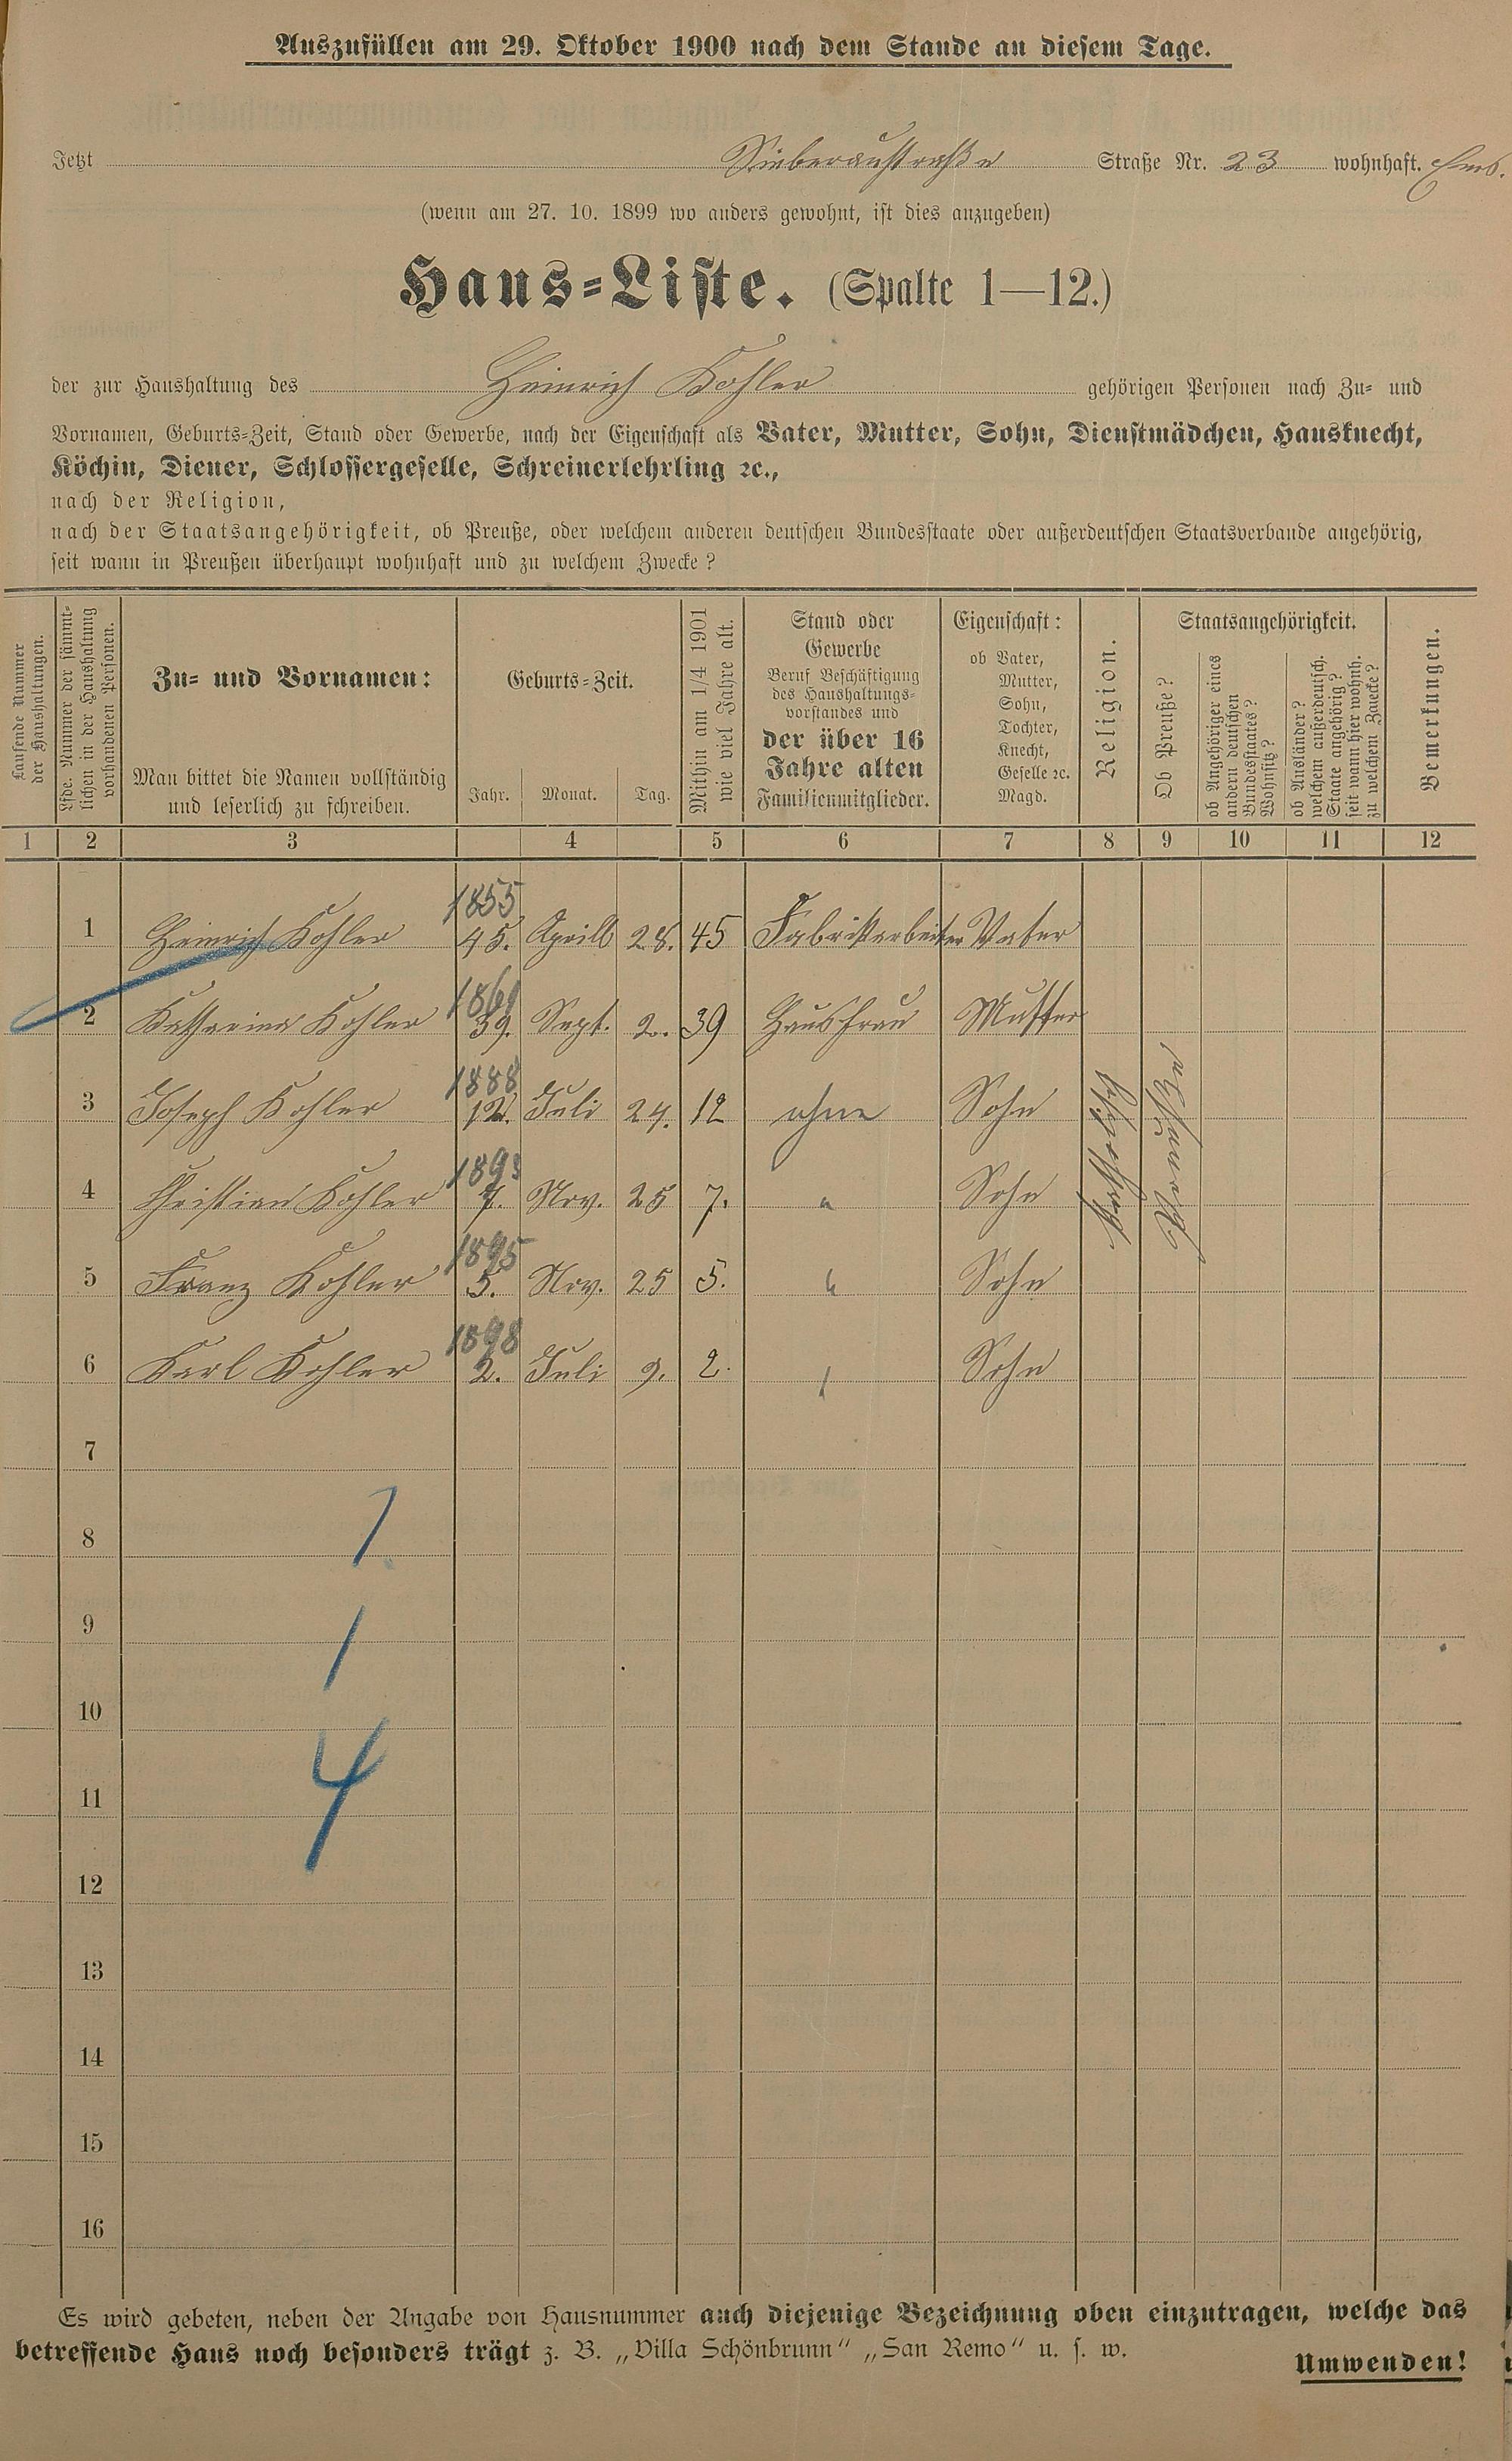 Auszufüllen am 29. Oktober 1900 nach dem Stande an diesem Tage.
Jetzt Sieberaustraße Straße Nr. 23 wohnhaft.
(wenn am 27. 10. 1899 wo anders gewohnt, ist dies anzugeben)
Haus=Liste. (Spalte 1—12.)
der zur Haushaltung des Heinrich Kohler gehörigen Personen nach Zu= und
Vornamen, Geburts=Zeit, Stand oder Gewerbe, nach der Eigenschaft als Vater, Mutter, Sohn, Dienstmädchen, Hausknecht,
Köchin, Diener, Schlossergeselle, Schreinerlehrling ꝛc.,
nach der Religion,
nach der Staatsangehörigkeit, ob Preuße, oder welchem anderen deutschen Bundesstaate oder außerdeutschen Staatsverbande angehörig,
seit wann in Preußen überhaupt wohnhaft und zu welchem Zwecke?
Laufende Nummer
der Haushaltungen.
Lfde. Nummer der sämmt=
lichen in der Haushaltung
vorhandenen Personen.
Zu= und Vornamen:
Man bittet die Namen vollständig
und leserlich zu schreiben.
Geburts=Zeit.
Jahr. Monat. Tag.
Mithin am 1/4 1901
wie viel Jahre alt.
Stand oder
Gewerbe
Beruf Beschäftigung
des Haushaltungs=
vorstandes und
der über 16
Jahre alten
Familienmitglieder.
Eigenschaft:
ob Vater,
Mutter,
Sohn,
Tochter,
Knecht,
Geselle ꝛc.
Magd.
Religion.
Staatsangehörigkeit.
Ob Preuße?
ob Angehöriger eines
andern deutschen
Bundesstaates?
Wohnsitz?
ob Ausländer?
welchem außerdeutsch.
Staate angehörig?
seit wann hier wohnh.
zu welchem Zwecke?
Bemerkungen.
1 2 3 4 5 6 7 8 9 10 11 12
1855
1 Heinrich Kohler 45. Aprill 28. 45 Fabrikarbeiter Vater
1861
2 Katharina Kohler 39. Sept. 2. 39 Hausfrau Mutter
1888
3 Joseph Kohler 12. Juli 24. 12 ohne Sohn
1893
4 Christian Kohler 7. Nov. 25 7. " Sohn
1895
5 Franz Kohler 5. Nov. 25 5. " Sohn
1898
6 Karl Kohler 2. Juli 9. 2. " Sohn
katholisch
Preuße
7
8
9
10
11
12
13
14
15
16
1.
1
4
Es wird gebeten, neben der Angabe von Hausnummer auch diejenige Bezeichnung oben einzutragen, welche das
betreffende Haus noch besonders trägt z. B. „Villa Schönbrunn" „San Remo" u. s. w.
Umwenden!